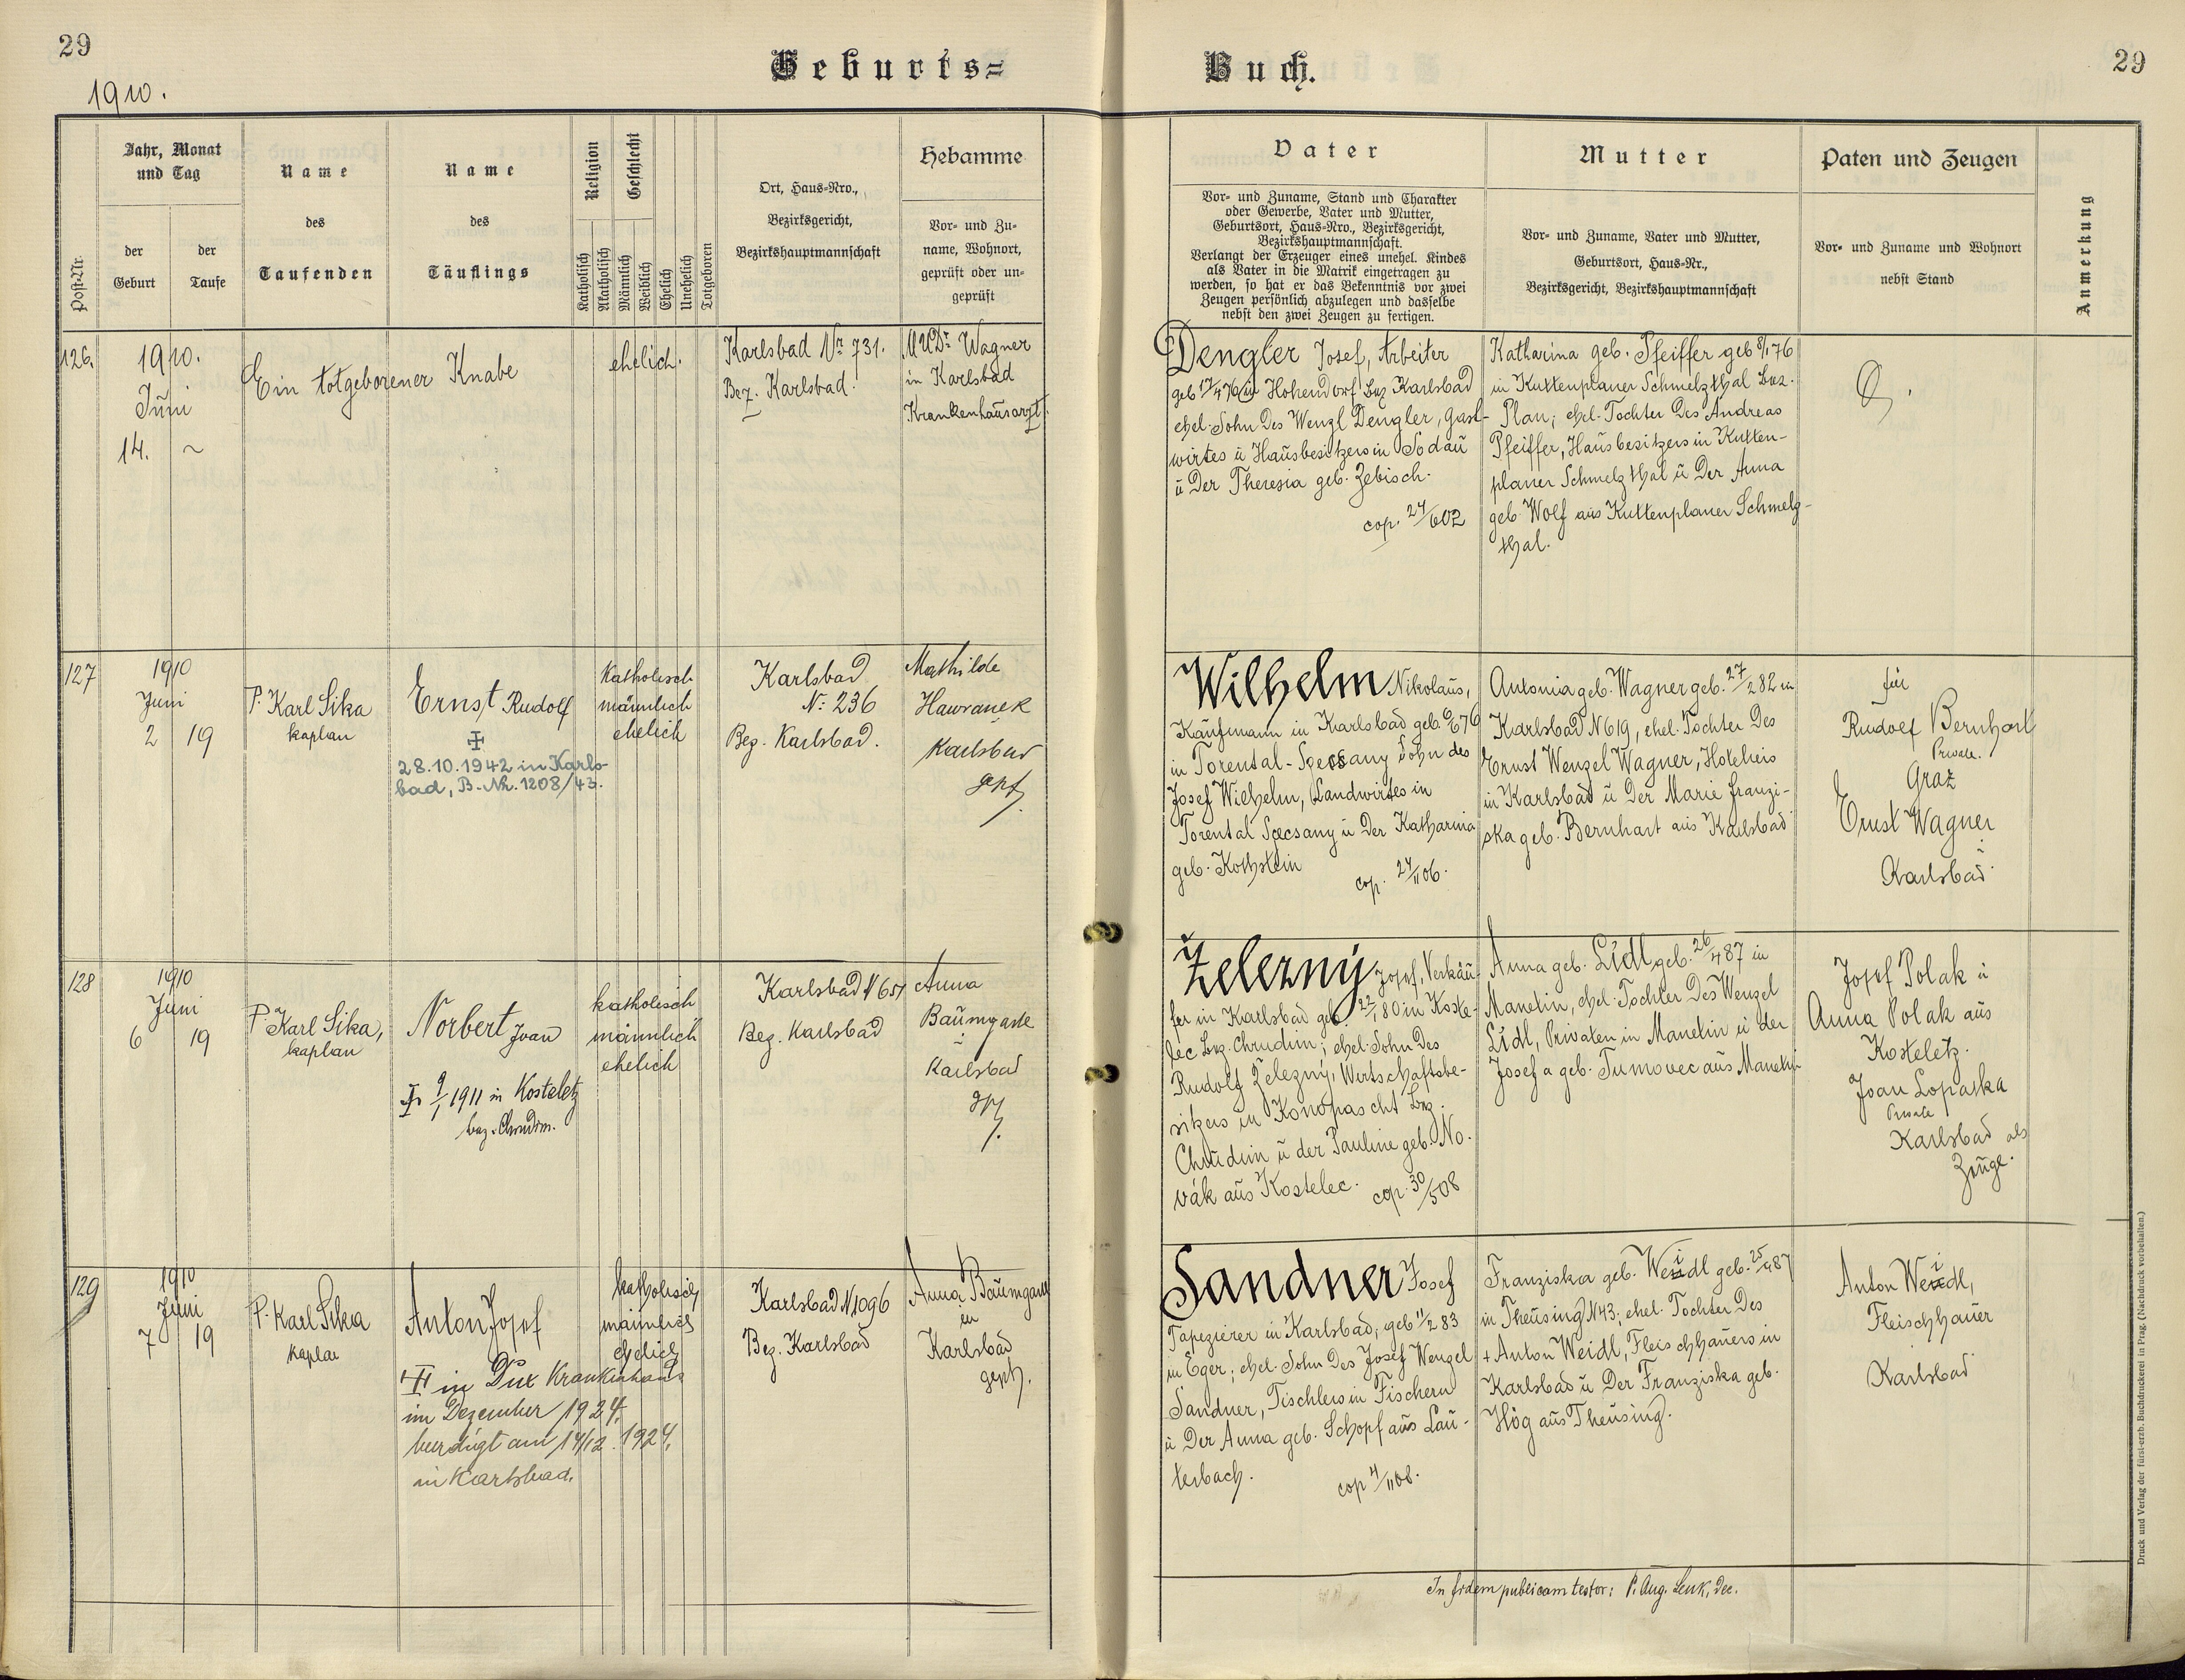 29
Geburts=
Buch.
29
1910.
Post-Nr.
Jahr, Monat
und Tag
der
Geburt
der
Taufe
Name
des
Taufenden
Name
des
Täuflings
Religion
Geschlecht
Katholisch
Akatholisch
Männlich
Weiblich
Ehelich
Unehelich
Totgeboren
Ort, Haus-Nro.,
Bezirksgericht,
Bezirkshauptmannschaft
Hebamme
Vor- und Zu-
name, Wohnort,
geprüft oder un-
geprüft
Vater
Vor- und Zuname, Stand und Charakter
oder Gewerbe, Vater und Mutter,
Geburtsort, Haus-Nro., Bezirksgericht,
Bezirkshauptmannschaft.
Verlangt der Erzeuger eines unehel. Kindes
als Vater in die Matrik eingetragen zu
werden, so hat er das Bekenntnis vor zwei
Zeugen persönlich abzulegen und dasselbe
nebst den zwei Zeugen zu fertigen.
Mutter
Vor- und Zuname, Vater und Mutter,
Geburtsort, Haus-Nr.,
Bezirksgericht, Bezirkshauptmannschaft
Paten und Zeugen
Vor- und Zuname und Wohnort
nebst Stand
Anmerkung
126.
1910.
Juni
14. ~
Ein totgeborener Knabe
ehelich.
Karlsbad Nr 731.
Bez. Karlsbad.
MUDr. Wagner
in Karlsbad
Krankenhausarzt.
Dengler Josef, Arbeiter
geb 17/4 76 in Hohendorf Bez Karlsbad
ehel. Sohn des Wenzl Dengler, Gast-
wirtes u Hausbesitzers in Sodau
u der Theresia geb. Zebisch.
cop. 24/6 02
Katharina geb. Pfeiffer geb 8/1 76
in Kuttenplaner Schmelzthal Bez.
Plan; ehel. Tochter des Andreas
Pfeiffer, Hausbesitzers in Kutten-
planer Schmelzthal u der Anna
geb Wolf aus Kuttenplaner Schmelz-
thal.
127
1910
Juni
2 19
P. Karl Sika
kaplan
Ernst Rudolf
28.10.1942 in Karls-
bad, B.-Nr. 1208/43.
Katholisch
männlich
ehelich
Karlsbad
N: 236
Bez. Karlsbad.
Mathilde
Hawranek
Karlsbad
gept.
Wilhelm Nikolaus,
Kaufmann in Karlsbad geb. 6/6 76
in Torental-Specsany Sohn des
Josef Wilhelm, Landwirtes in
Torental Specsany u der Katharina
geb. Kothstein
cop. 24/11 06.
Antonia geb. Wagner geb. 27/2 82 in
Karlsbad N 619, ehel. Tochter des
Ernst Wenzel Wagner, Hoteliers
in Karlsbad u der Marie Franzi-
ska geb. Bernhart aus Karlsbad
für
Rudolf Bernhart
Private.
Graz
Ernst Wagner
Karlsbad
128
1910
Juni
6 19
P. Karl Sika,
kaplan
Norbert Joan
9/1 1911 in Kosteletz
bez. Chrudim.
katholisch
männlich
ehelich
Karlsbad N 651
Bez. Karlsbad
Anna
Baumgartl
Karlsbad
Železný Josef, Verkäu-
fer in Karlsbad geb. 22/1 80 in Koste-
lec Bez. Chrudim; ehel. Sohn des
Rudolf Železný, Wirtschaftsbe-
sitzers in Konopascht Bez.
Chrudim u der Pauline geb. No-
vák aus Kostelec.
cop. 30/5 08
Anna geb. Lidl geb. 26/4 87 in
Manetin, ehel. Tochter des Wenzel
Lidl, Privaten in Manetin u der
Josefa geb. Tumovec aus Manetin
Josef Polak u
Anna Polak aus
Kosteletz.
Joan Lopatka
Private
Karlsbad als
Zeuge.
129
1910
Juni
7 19
P. Karl Sika
kaplan
Anton Josef
in Dux Krankenhaus
im Dezember 1924,
beerdigt am 14/12. 1924,
in Karlsbad.
katholisch
männlich
ehelich
Karlsbad N 1096
Bez. Karlsbad
Anna Baumgartl
in
Karlsbad
gept.
Sandner Josef
Tapezierer in Karlsbad, geb 11/2 83
in Eger; ehel. Sohn des Josef Wenzel
Sandner, Tischlers in Fischern
u der Anna geb. Schopf aus Lau-
terbach.
cop 4/11 08.
Franziska geb. Weidl geb. 25/4 87
in Theusing N 43; ehel. Tochter des
+ Anton Weidl, Fleischhauers in
Karlsbad u der Franziska geb.
Hög aus Theusing.
Anton Weidl,
Fleischhauer
Karlsbad
In fidem publicam testor: P. Aug. Lenk, Dec.
Druck und Verlag der fürst-erzb. Buchdruckerei in Prag. (Nachdruck vorbehalten.)